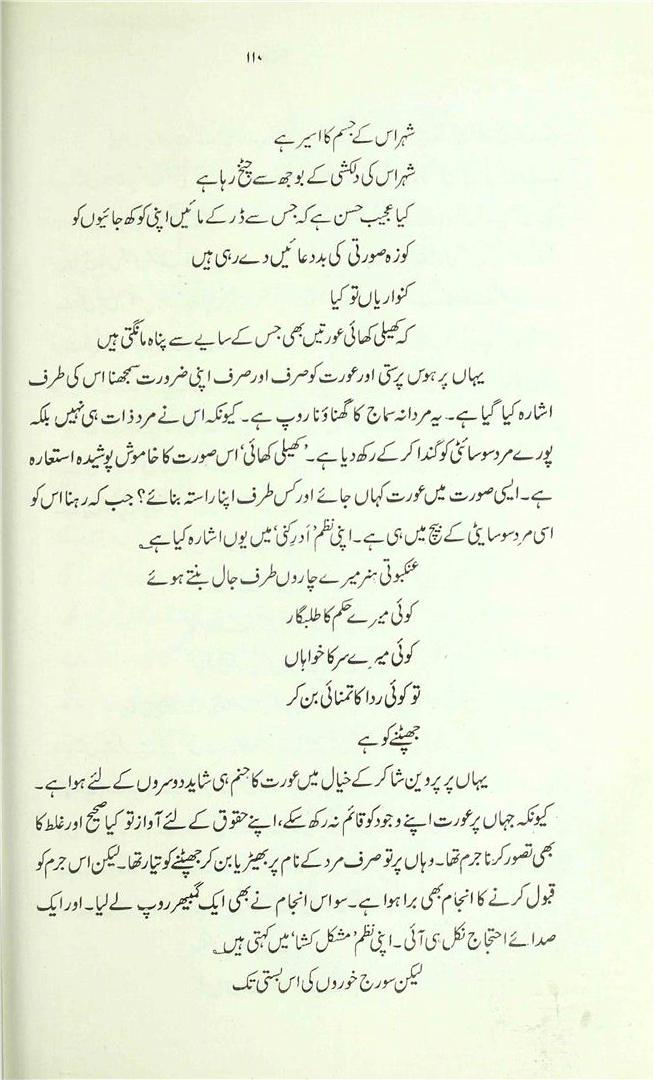 ۱۱۰
شہر اس کے جسم کا اسیر ہے
شہر اس کی دلکشی کے بوجھ سے چیخ رہا ہے
کیا عجیب حسن ہے کہ جس سے ڈر کے مائیں اپنی کوکھ جائیوں کو
کوزہ صورتی کی بددعائیں دے رہی ہیں
کنواریاں تو کیا
کہ کھیلی کھائی عورتیں بھی جس کے سایے سے پناہ مانگتی ہیں
یہاں پر ہوس پرستی اور عورت کو صرف اور صرف اپنی ضرورت سمجھنا اس کی طرف
اشارہ کیا گیا ہے۔ یہ مردانہ سماج کا گھناؤنا روپ ہے۔ کیونکہ اس نے مرد ذات ہی نہیں بلکہ
پورے مرد سوسائٹی کو گندا کر کے رکھ دیا ہے۔ 'کھیلی کھائی' اس صورت کا خاموش پوشیدہ استعارہ
ہے۔ ایسی صورت میں عورت کہاں جائے اور کس طرف اپنا راستہ بنائے؟ جب کہ رہنا اس کو
اسی مرد سوسایٹی کے بیچ میں ہی ہے۔ اپنی نظم 'اَدرِکنی' میں یوں اشارہ کیا ہے
عنکبوتی ہنر میرے چاروں طرف جال بنتے ہوئے
کوئی میرے حکم کا طلبگار
کوئی میرے سر کا خواہاں
تو کوئی ردا کا تمنائی بن کر
جھپٹنے کو ہے
یہاں پر پروین شاکر کے خیال میں عورت کا جنم ہی شاید دوسروں کے لئے ہوا ہے۔
کیونکہ جہاں پر عورت اپنے وجود کو قائم نہ رکھ سکے، اپنے حقوق کے لئے آواز تو کیا صحیح اور غلط کا
بھی تصور کرنا جرم تھا۔ وہاں پر تو صرف مرد کے نام پر بھیڑیا بن کر جھپٹنے کو تیار تھا۔ لیکن اس جرم کو
قبول کرنے کا انجام بھی برا ہوا ہے۔ سو اس انجام نے بھی ایک گمبھیر روپ لے لیا۔ اور ایک
صدائے احتجاج نکل ہی آئی۔ اپنی نظم 'مشکل کشا' میں کہتی ہیں
لیکن سورج خوروں کی اس بستی تک